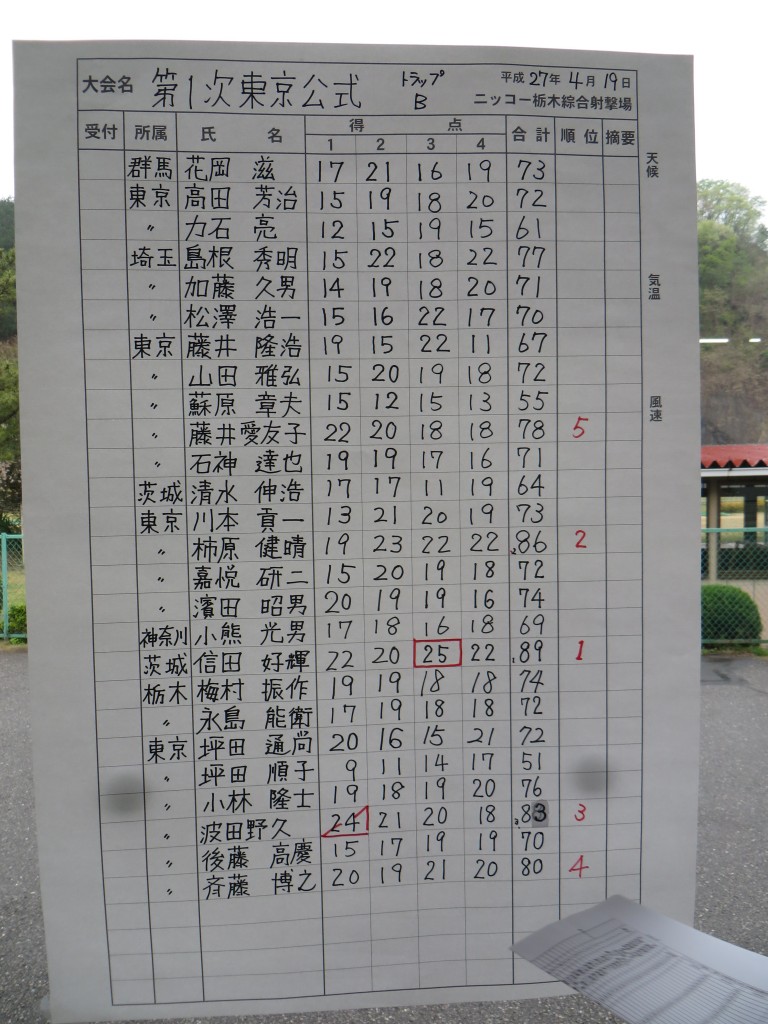 大会名 第1次東京公式 トラップ B 平成27年4月19日 ニッコー栃木綜合射撃場
受付 所属 氏名 得点 1 2 3 4 合計 順位 摘要
天候
気温
風速
群馬 花岡 滋 17 21 16 19 73
東京 高田 芳治 15 19 18 20 72
〃 力石 亮 12 15 19 15 61
埼玉 島根 秀明 15 22 18 22 77
〃 加藤 久男 14 19 18 20 71
〃 松澤 浩一 15 16 22 17 70
東京 藤井 隆浩 19 15 22 11 67
〃 山田 雅弘 15 20 19 18 72
〃 蘇原 章夫 15 12 15 13 55
〃 藤井愛友子 22 20 18 18 78 5
〃 石神 達也 19 19 17 16 71
茨城 清水 伸浩 17 17 11 19 64
東京 川本 貢一 13 21 20 19 73
〃 柿原 健晴 19 23 22 22 86 2
〃 嘉悦 研二 15 20 19 18 72
〃 濱田 昭男 20 19 19 16 74
神奈川 小熊 光男 17 18 16 18 69
茨城 信田 好輝 22 20 25 22 89 1
栃木 梅村 振作 19 19 18 18 74
〃 永島 能衛 17 19 18 18 72
東京 坪田 通尚 20 16 15 21 72
〃 坪田 順子 9 11 14 17 51
〃 小林 隆士 19 18 19 20 76
〃 波田野久 24 21 20 18 83 3
〃 後藤 高慶 15 17 19 19 70
〃 斉藤 博之 20 19 21 20 80 4